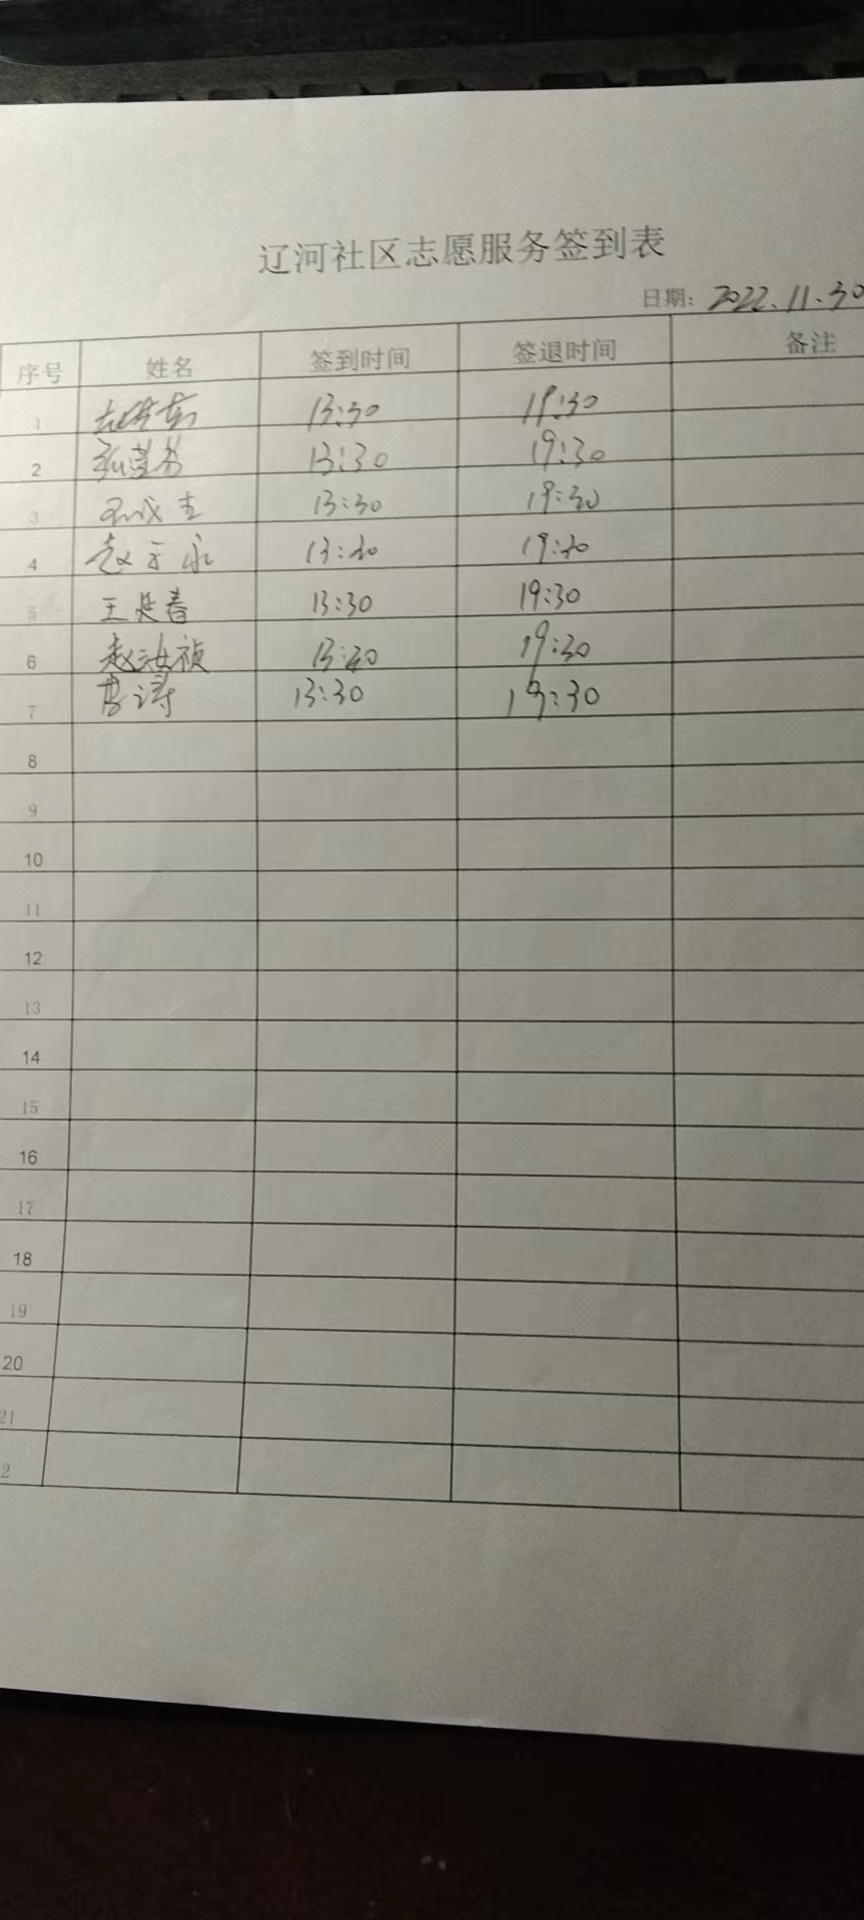 辽河社区志愿服务签到表
日期: 2022.11.30
序号 姓名 签到时间 签退时间 备注
1 13:30 19:30
2 13:30 19:30
3 13:30 19:30
4 赵 永 13:30 19:30
5 王延春 13:30 19:30
6 赵汝祯 13:30 19:30
7 李涛 13:30 19:30
8
9
10
11
12
13
14
15
16
17
18
19
20
21
2